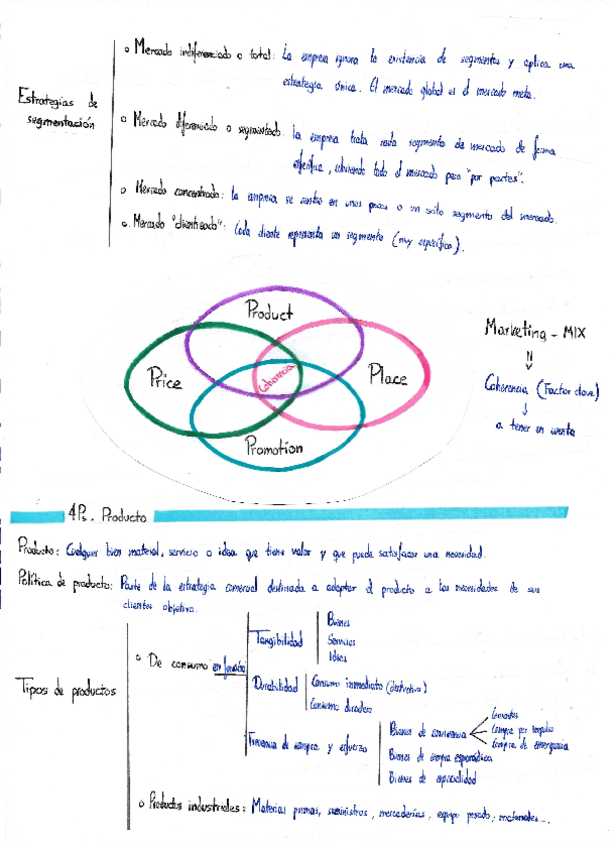 Estrategias de
segmentación
o Mercado indiferenciado o total: La empresa ignora la existencia de segmentos y aplica una
estrategia única. El mercado global es el mercado meta.
o Mercado diferenciado o segmentado: La empresa trata cada segmento de mercado de forma
específica, cubriendo todo el mercado pero "por partes".
o Mercado concentrado: la empresa se centra en unos pocos o un solo segmento del mercado.
o Mercado "clientizado": Cada cliente representa un segmento (muy específico).
Product
Price
Coherencia
Place
Promotion
Marketing - MIX
Coherencia (Factor clave)
a tener en cuenta
4Ps. Producto
Producto: Cualquier bien material, servicio o idea que tiene valor y que puede satisfacer una necesidad.
Política de producto: Parte de la estrategia comercial destinada a adaptar el producto a las necesidades de sus
clientes objetivo.
Tipos de productos
o De consumo en función
Tangibilidad
Bienes
Servicios
Ideas
Durabilidad
Consumo inmediato (destructivo)
Consumo duradero
Frecuencia de compra y esfuerzo
Bienes de conveniencia
Corrientes
Compra por impulso
Compra de emergencia
Bienes de compra esporádica
Bienes de especialidad
o Productos industriales: Materias primas, suministros, mercaderías, equipo pesado, materiales...